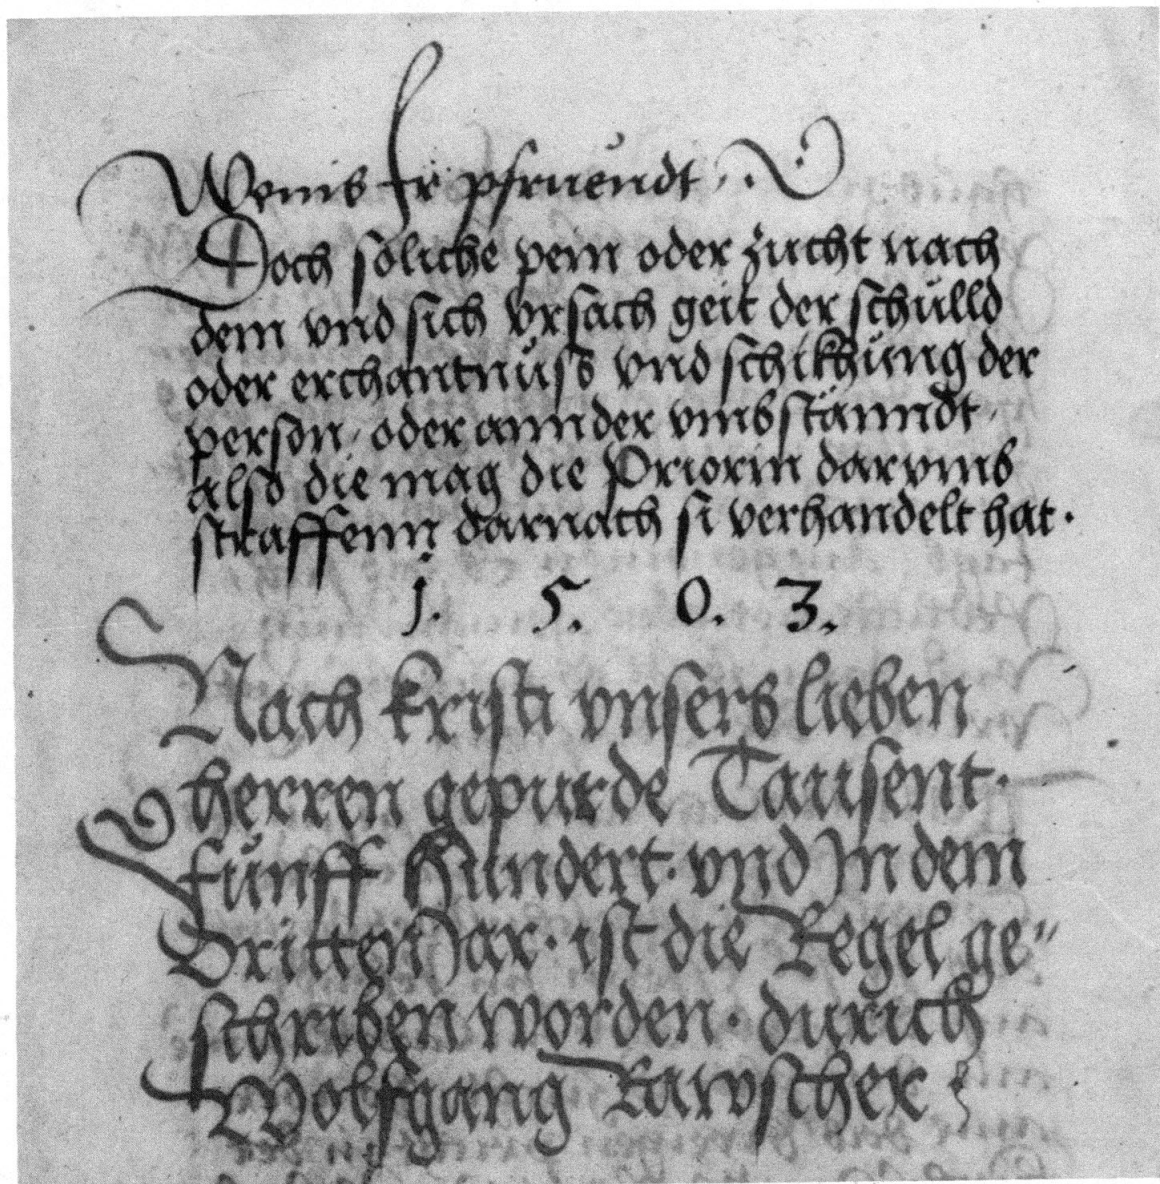 Wenis Ir pfruendt
Doch söliche pein oder zucht nach
dem vnd sich vrsach geit der schulld
oder erchantnüss vnd schikhüng der
person / oder annder vmbständt /
also die mag die Priorin darvmb
straffenn darnach si verhandelt hat ·
1. 5. 0. 3.
Nach kristi vnsers lieben
herren gepurde Tausent ·
fünff Hundert · vnd In dem
Dritten Jar · ist die Regel ge"
schriben worden · durich
Wolfgang Rawscher